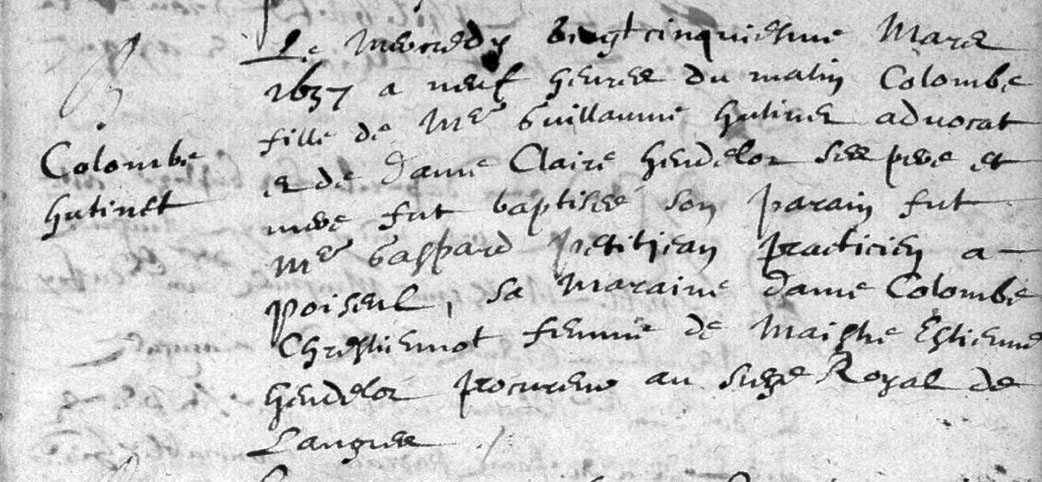 Colombe
hutinet
Le mercredy vingtcinquiesme Mars
1637 a neuf heures du matin Colombe
fille de Me Guillaume hutinet advocat
et de dame Claire heudelor ses pere et
mere fut baptisee son parain fut
Me Gaspard petitjean practicien a
poiseul, sa maraine dame Colombe
Chrestiennot femme de Maistre Estienne
heudelor procureur au siege Royal de
Langres